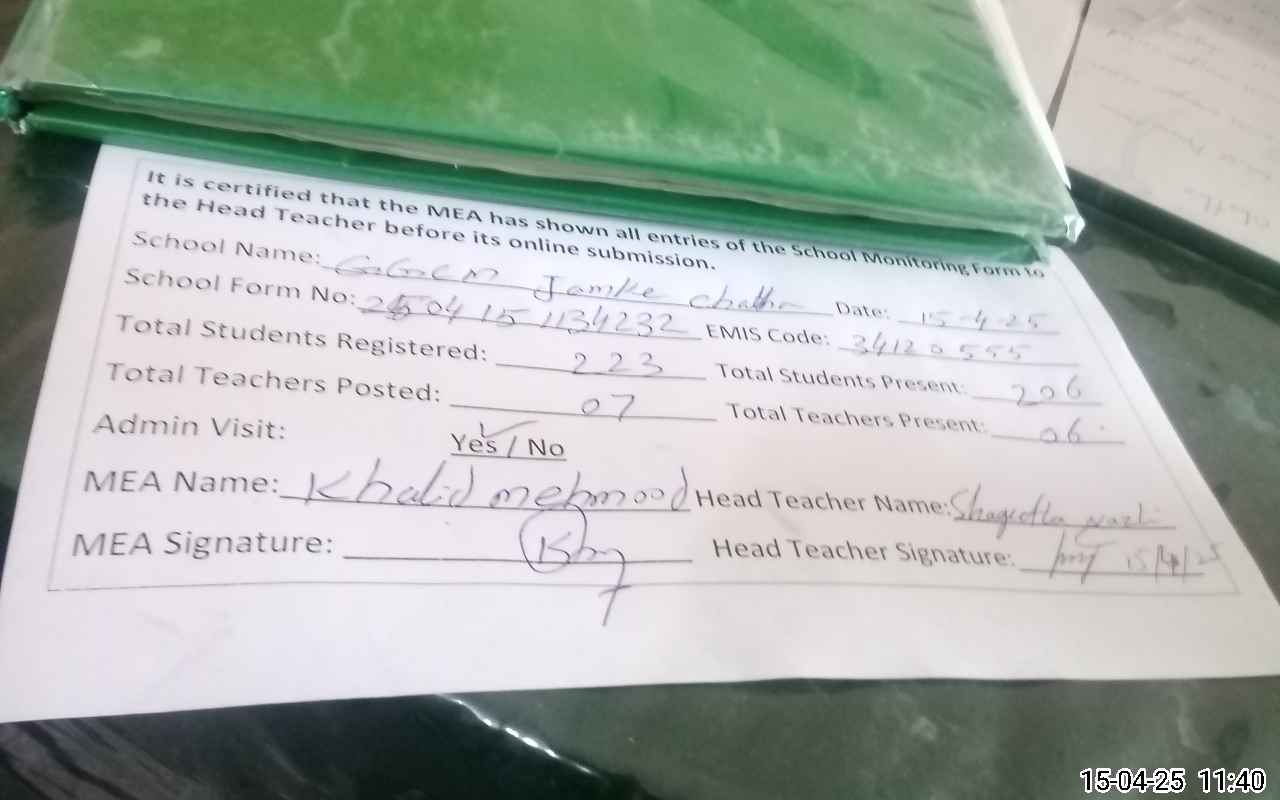 It is certified that the MEA has shown all entries of the School Monitoring Form to
the Head Teacher before its online submission.
School Name: GGCM Jamke Chatha Date: 15-4-25
School Form No: 250415 1134232 EMIS Code: 34120555
Total Students Registered: 223 Total Students Present: 206
Total Teachers Posted: 07 Total Teachers Present: 06
Admin Visit: Yes / No
MEA Name: Khalid mehmood Head Teacher Name:
MEA Signature: Head Teacher Signature: 15/4/25
15-04-25 11:40